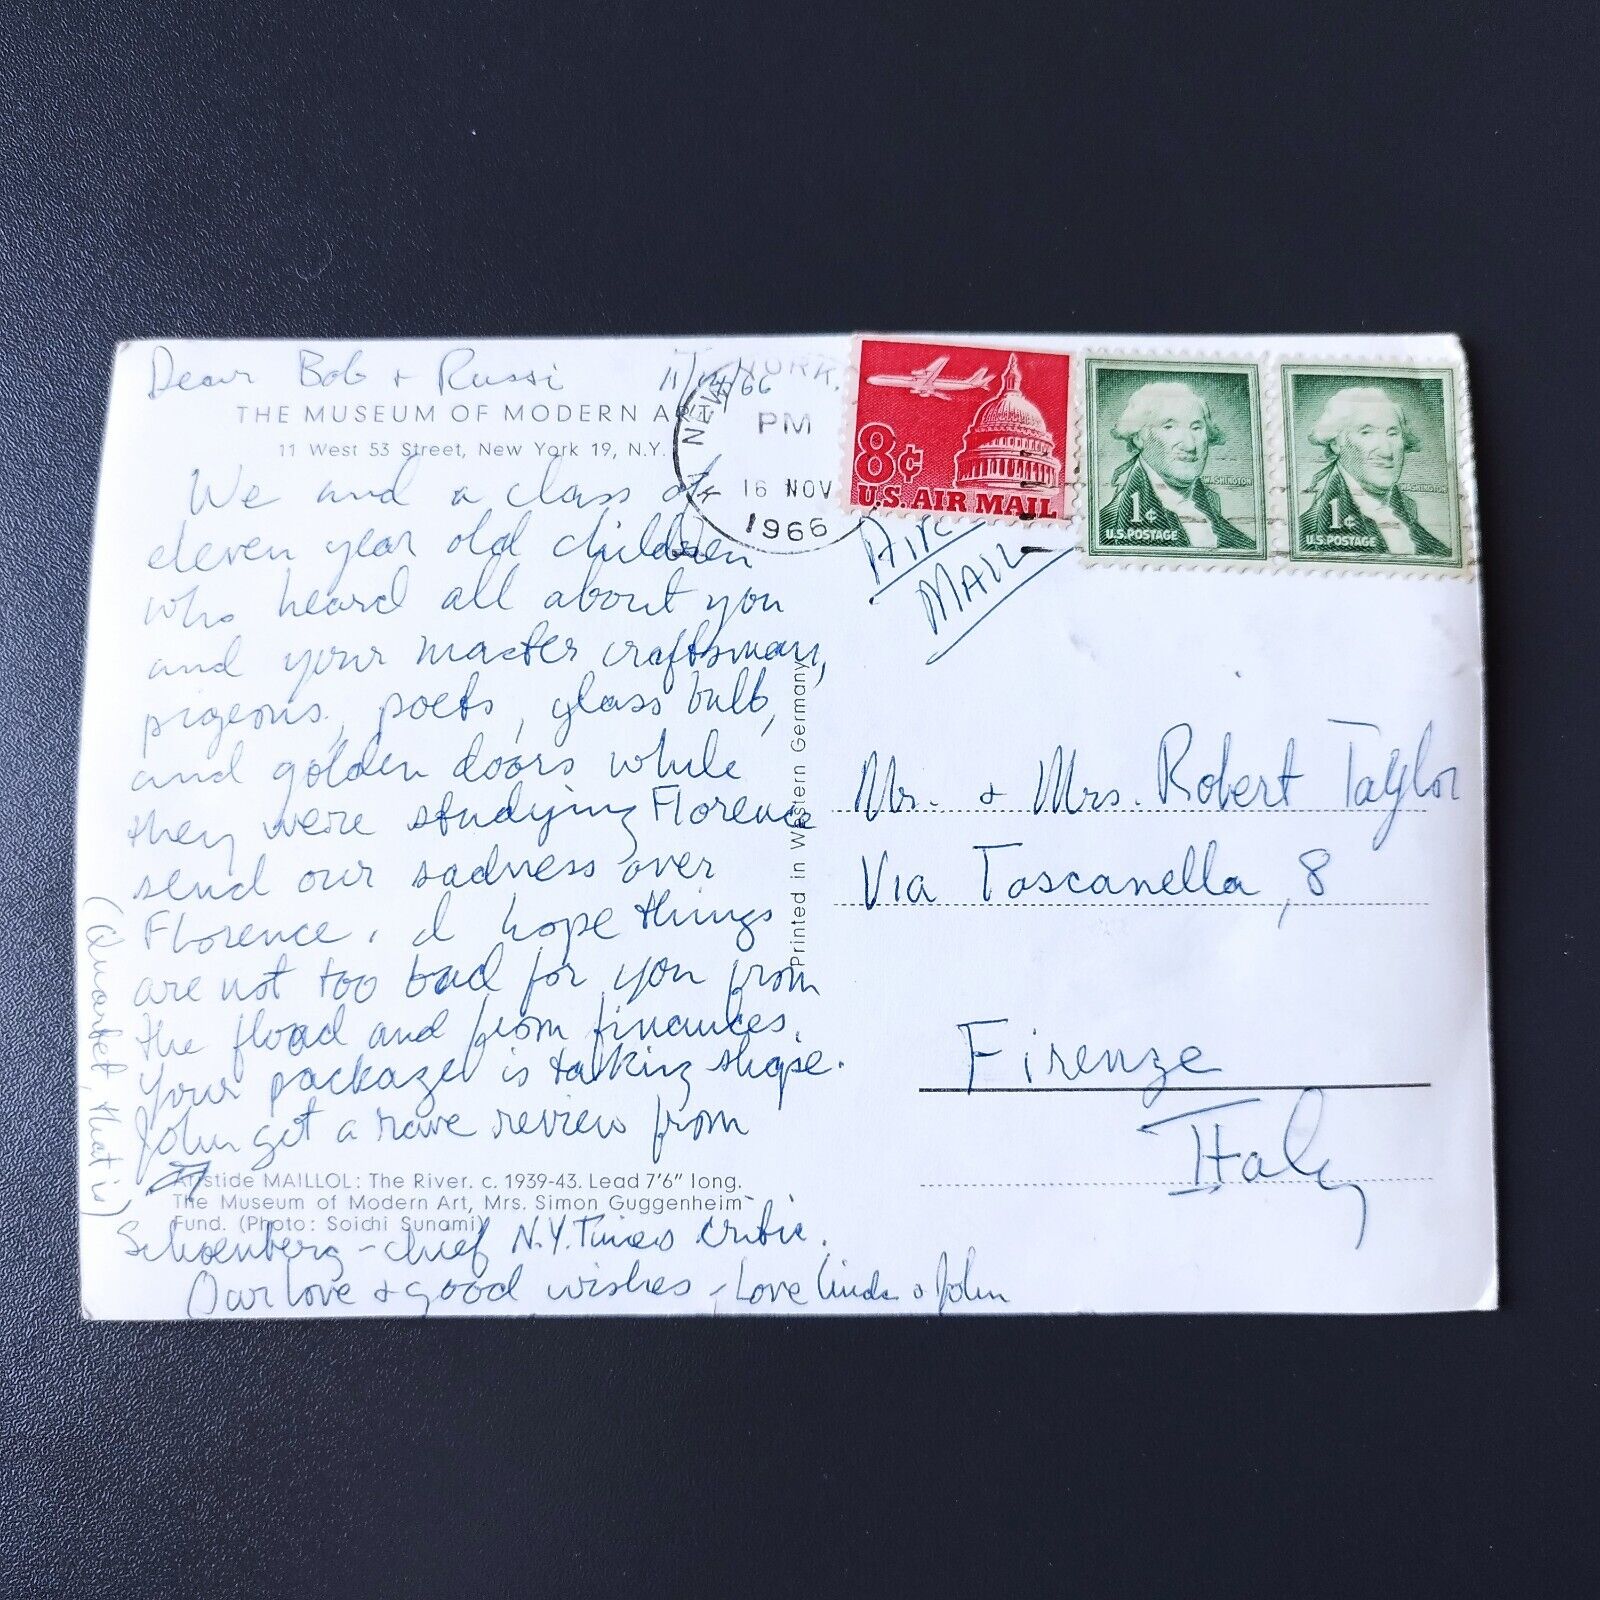 Dear Bob + Russi 11/14/66
THE MUSEUM OF MODERN ART
11 West 53 Street, New York 19, N.Y.
We and a class of
eleven year old children
who heard all about you
and your master craftsman,
pigeons, poets, glass bulb,
and golden doors while
they were studying Florence
send our sadness over
Florence. I hope things
are not too bad for you from
the flood and from finances.
Your package is taking shape.
John got a rave review from
(Quartet, that is)
Aristide MAILLOL: The River. c. 1939-43. Lead 7'6" long.
The Museum of Modern Art, Mrs. Simon Guggenheim
Fund. (Photo: Soichi Sunami)
Schoenberg - chief N.Y. Times critic.
Our love + good wishes - Love Linda & John
Printed in Western Germany
NEW YORK, N.Y.
PM
16 NOV
1966
8¢
U.S. AIR MAIL
WASHINGTON
1¢
U.S. POSTAGE
WASHINGTON
1¢
U.S. POSTAGE
AIR
MAIL
Mr. + Mrs. Robert Taylor
Via Toscanella, 8
Firenze
Italy